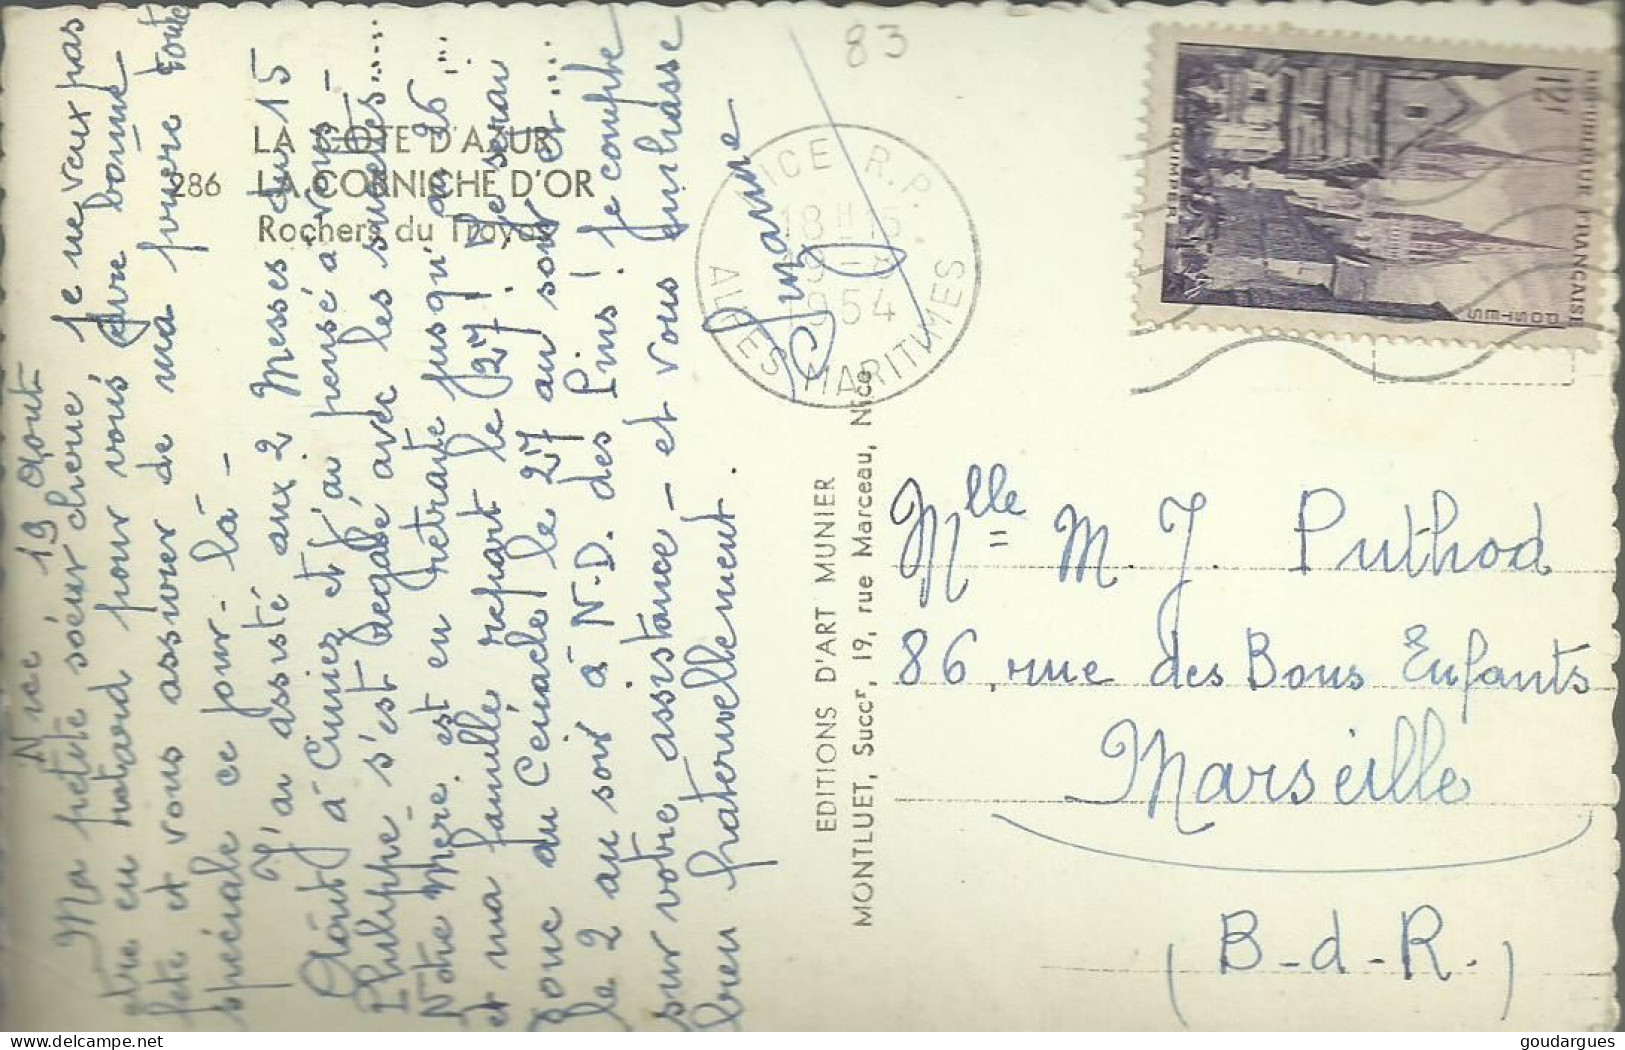 Nice 19 Août
Ma petite soeur chérie Je ne veux pas
être en retard pour vous dire bonne
fête et vous assurer de ma prière toute
spéciale ce jour-là -
J'ai assisté aux 2 Messes du 15
Août à Cimiez et j'ai pensé à vous -
Philippe s'est régalé avec les sucettes....
Notre Mère est en retraite jusqu'au 26 ...
et ma famille repart le 27! Je serai
donc du Cénacle le 27 au soir et....
le 2 au soir à N.D. des Pins! Je compte
sur votre assistance - et vous embrasse
bien fraternellement.
Suzanne
83
LA COTE D'AZUR
286 LA CORNICHE D'OR
Rochers du Trayas
NICE R.P.
18H15
19-8
1954
ALPES MARITIMES
REPUBLIQUE FRANÇAISE
POSTES
12F
QUIMPER
EDITIONS D'ART MUNIER
MONTLUET, Succr, 19, rue Marceau, Nice
Mlle M. J. Puthod
86, rue des Bons Enfants
Marseille
(B-d-R.)
delcampe.net
goudargues